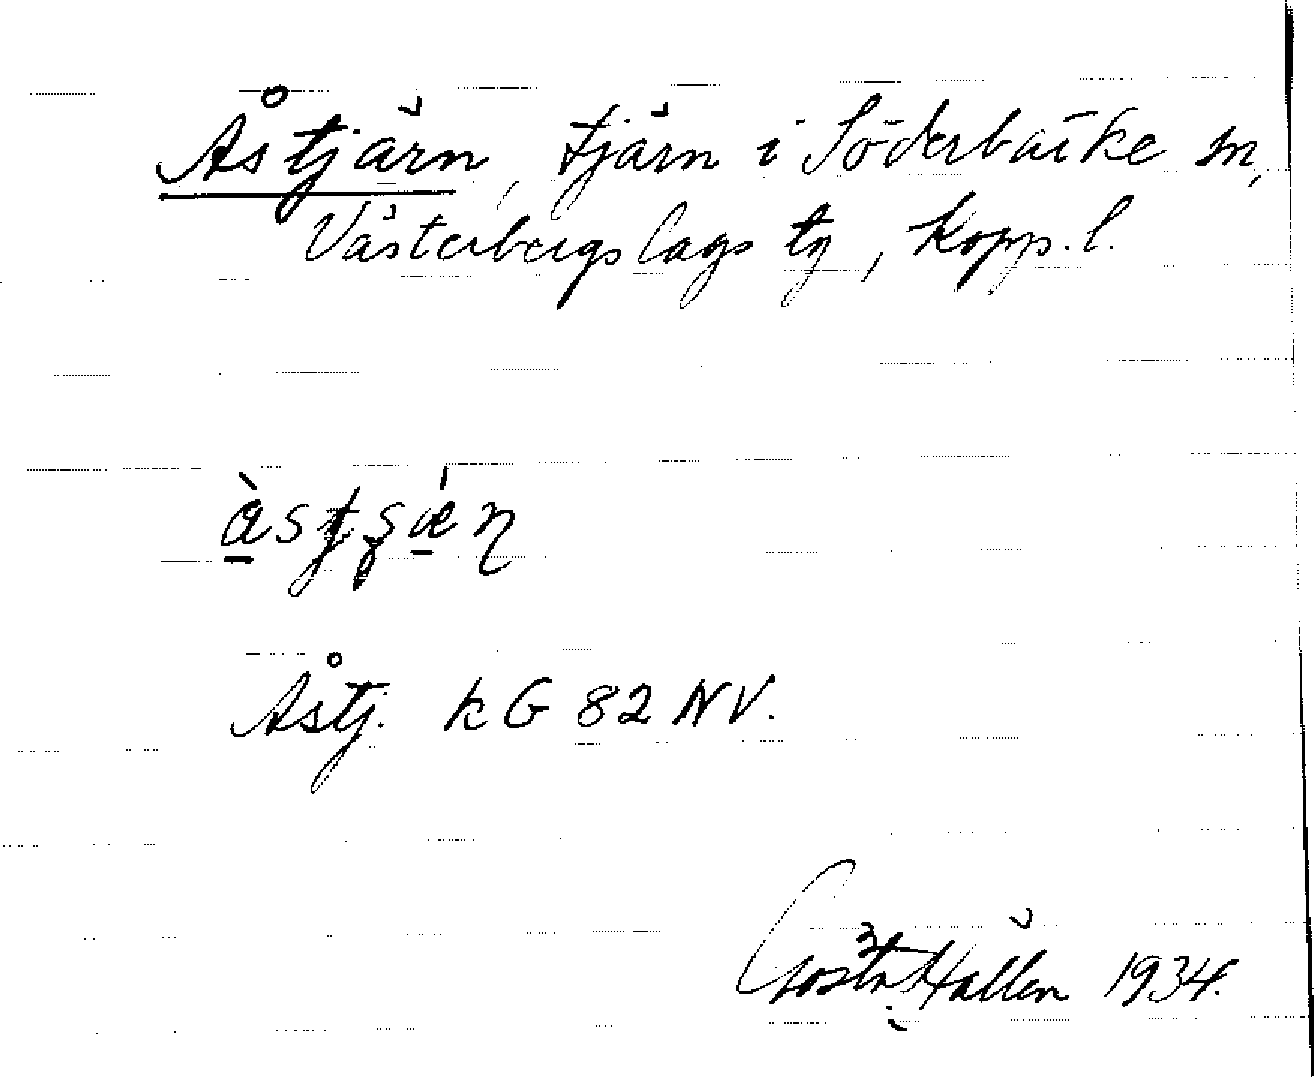 Åstjärn, tjärn i Söderbärke sn,
Västerbergslags tg, Kopp. l.
Åstj. k G 82 NV.
Gösta Hallén 1934.